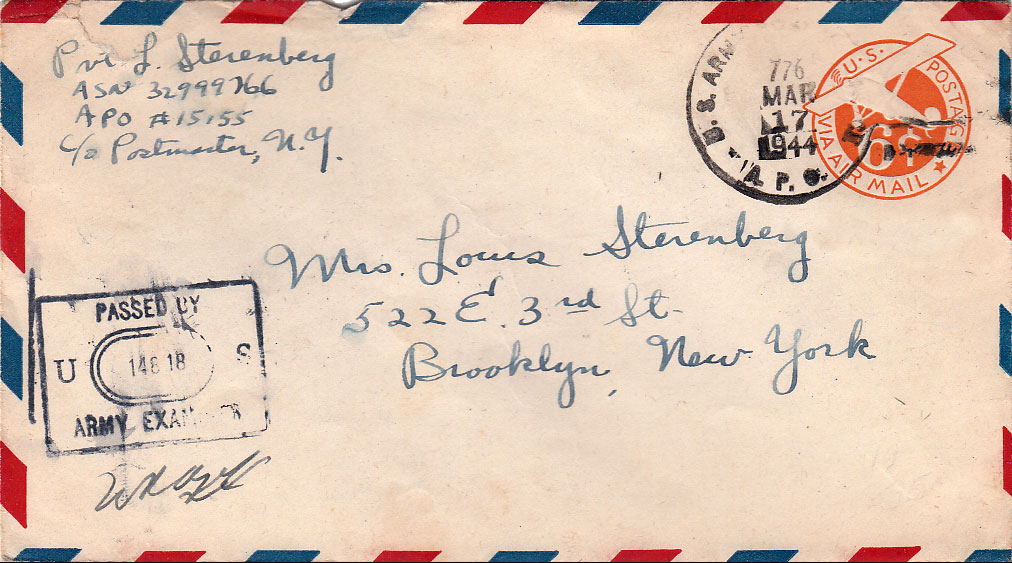 Pvt L. Sterenberg
ASN 32999766
APO #15155
c/o Postmaster, N.Y.
U.S. ARMY
776
MAR
17
1944
A.P.O.
U.S. POSTAGE
6¢
VIA AIR MAIL
Mrs. Louis Sterenberg
522 E. 3rd St.
Brooklyn, New York
PASSED BY
U 14818 S
ARMY EXAMINER